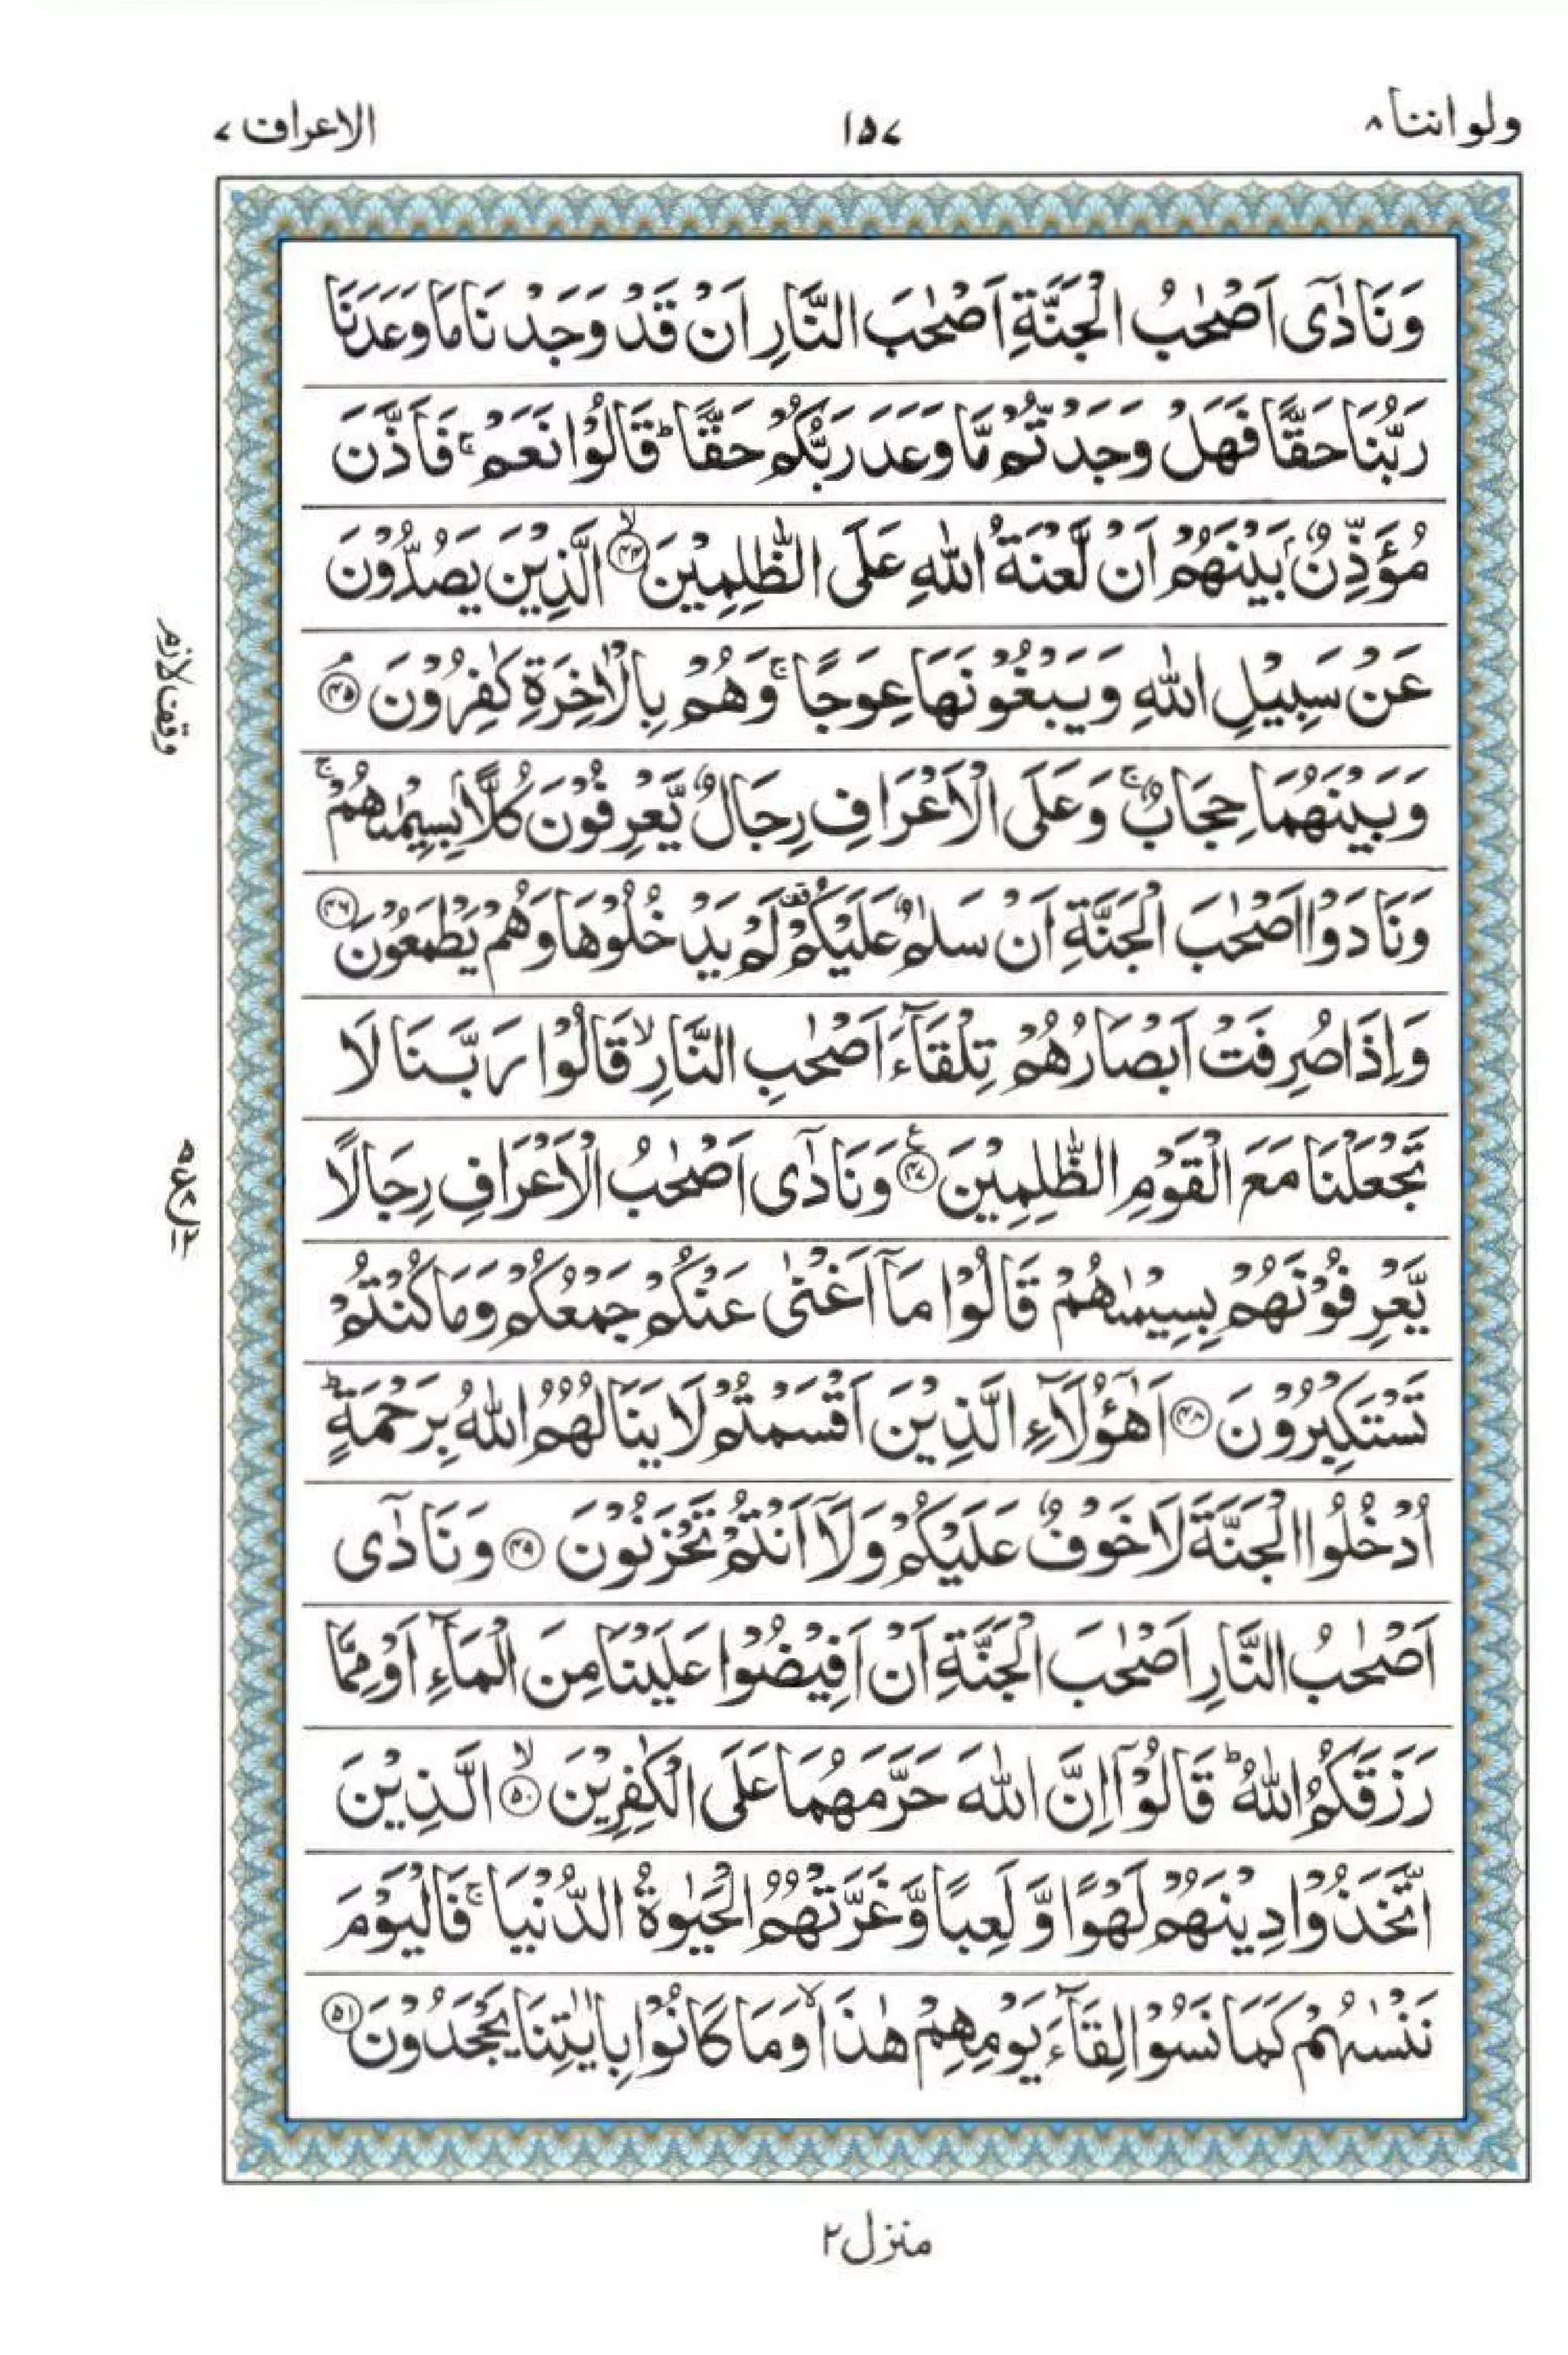 ولو اننا ۸
۱۵۷
الاعراف ۷
وَنَادٰۤی اَصْحٰبُ الْجَنَّةِ اَصْحٰبَ النَّارِ اَنْ قَدْ وَجَدْنَا مَا وَعَدَنَا
رَبُّنَا حَقًّا فَهَلْ وَجَدْتُّمْ مَّا وَعَدَ رَبُّكُمْ حَقًّا ؕ قَالُوْا نَعَمْ ۚ فَاَذَّنَ
مُؤَذِّنٌۢ بَیْنَهُمْ اَنْ لَّعْنَةُ اللّٰهِ عَلَی الظّٰلِمِیْنَ ﴿۴۴﴾ۙ الَّذِیْنَ یَصُدُّوْنَ
عَنْ سَبِیْلِ اللّٰهِ وَیَبْغُوْنَهَا عِوَجًا ۚ وَهُمْ بِالْاٰخِرَةِ كٰفِرُوْنَ ﴿۴۵﴾ۘ
وقف لازم
وَبَیْنَهُمَا حِجَابٌ ۚ وَعَلَی الْاَعْرَافِ رِجَالٌ یَّعْرِفُوْنَ كُلًّۢا بِسِیْمٰىهُمْ ۚ
وَنَادَوْا اَصْحٰبَ الْجَنَّةِ اَنْ سَلٰمٌ عَلَیْكُمْ ۟ لَمْ یَدْخُلُوْهَا وَهُمْ یَطْمَعُوْنَ ﴿۴۶﴾
وَاِذَا صُرِفَتْ اَبْصَارُهُمْ تِلْقَآءَ اَصْحٰبِ النَّارِ ۙ قَالُوْا رَبَّنَا لَا
تَجْعَلْنَا مَعَ الْقَوْمِ الظّٰلِمِیْنَ ﴿۴۷﴾ وَنَادٰۤی اَصْحٰبُ الْاَعْرَافِ رِجَالًا
یَّعْرِفُوْنَهُمْ بِسِیْمٰىهُمْ قَالُوْا مَاۤ اَغْنٰی عَنْكُمْ جَمْعُكُمْ وَمَا كُنْتُمْ
تَسْتَكْبِرُوْنَ ﴿۴۸﴾ اَهٰۤؤُلَآءِ الَّذِیْنَ اَقْسَمْتُمْ لَا یَنَالُهُمُ اللّٰهُ بِرَحْمَةٍ ؕ
اُدْخُلُوا الْجَنَّةَ لَا خَوْفٌ عَلَیْكُمْ وَلَاۤ اَنْتُمْ تَحْزَنُوْنَ ﴿۴۹﴾ وَنَادٰۤی
اَصْحٰبُ النَّارِ اَصْحٰبَ الْجَنَّةِ اَنْ اَفِیْضُوْا عَلَیْنَا مِنَ الْمَآءِ اَوْ مِمَّا
رَزَقَكُمُ اللّٰهُ ؕ قَالُوْۤا اِنَّ اللّٰهَ حَرَّمَهُمَا عَلَی الْكٰفِرِیْنَ ﴿۵۰﴾ۙ الَّذِیْنَ
اتَّخَذُوْا دِیْنَهُمْ لَهْوًا وَّلَعِبًا وَّغَرَّتْهُمُ الْحَیٰوةُ الدُّنْیَا ۚ فَالْیَوْمَ
نَنْسٰىهُمْ كَمَا نَسُوْا لِقَآءَ یَوْمِهِمْ هٰذَا ۙ وَمَا كَانُوْا بِاٰیٰتِنَا یَجْحَدُوْنَ ﴿۵۱﴾
منزل ۲